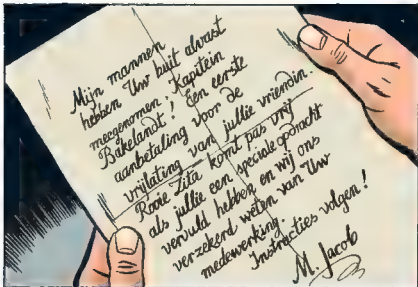 Mijn mannen
hebben Uw buit alvast
meegenomen, Kapitein
Bakelandt! Een eerste
aanbetaling voor de
vrijlating van jullie vriendin.
Rosie Zita komt pas vrij
als jullie een speciale opdracht
vervuld hebben en wij ons
verzekerd weten van Uw
medewerking.
Instructies volgen!
M. Jacob